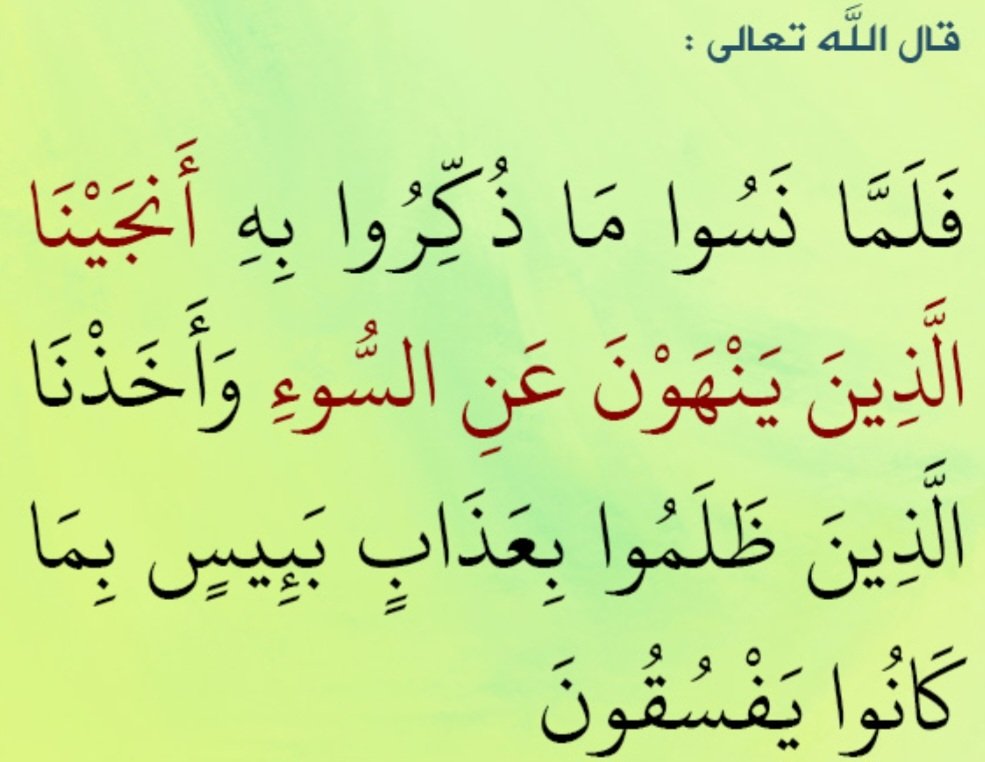 قال اللَّه تعالى :
فَلَمَّا نَسُوا مَا ذُكِّرُوا بِهِ أَنجَيْنَا
الَّذِينَ يَنْهَوْنَ عَنِ السُّوءِ وَأَخَذْنَا
الَّذِينَ ظَلَمُوا بِعَذَابٍ بَئِيسٍ بِمَا
كَانُوا يَفْسُقُونَ